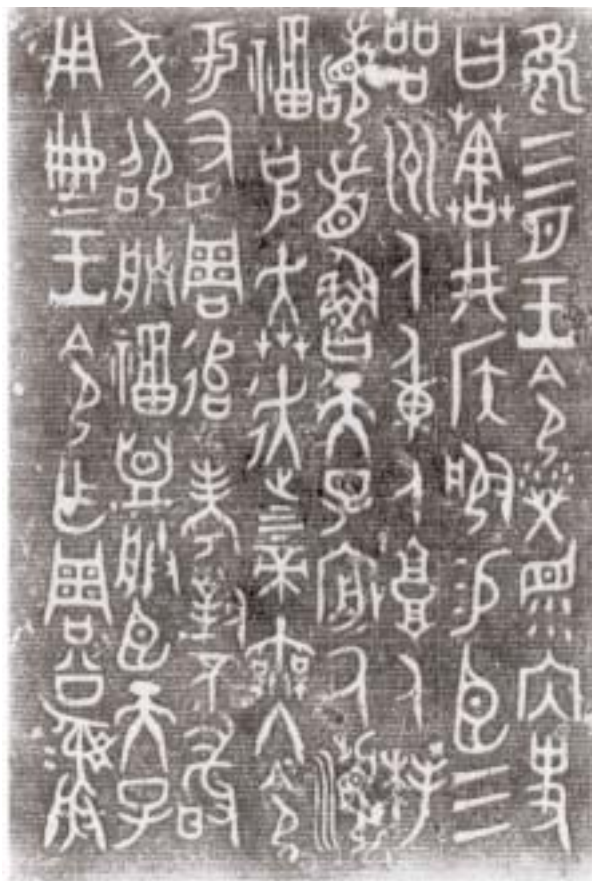 隹三月王令𤇾眔內史
曰𦯧井侯服易臣三
品州人重人𩫏人拜
䭫首魯天子𢓊厥瀕
福克奔走上下帝無冬令
于有周追考對不敢
㒸卲朕福盟朕臣天子
用典王令乍周公彝